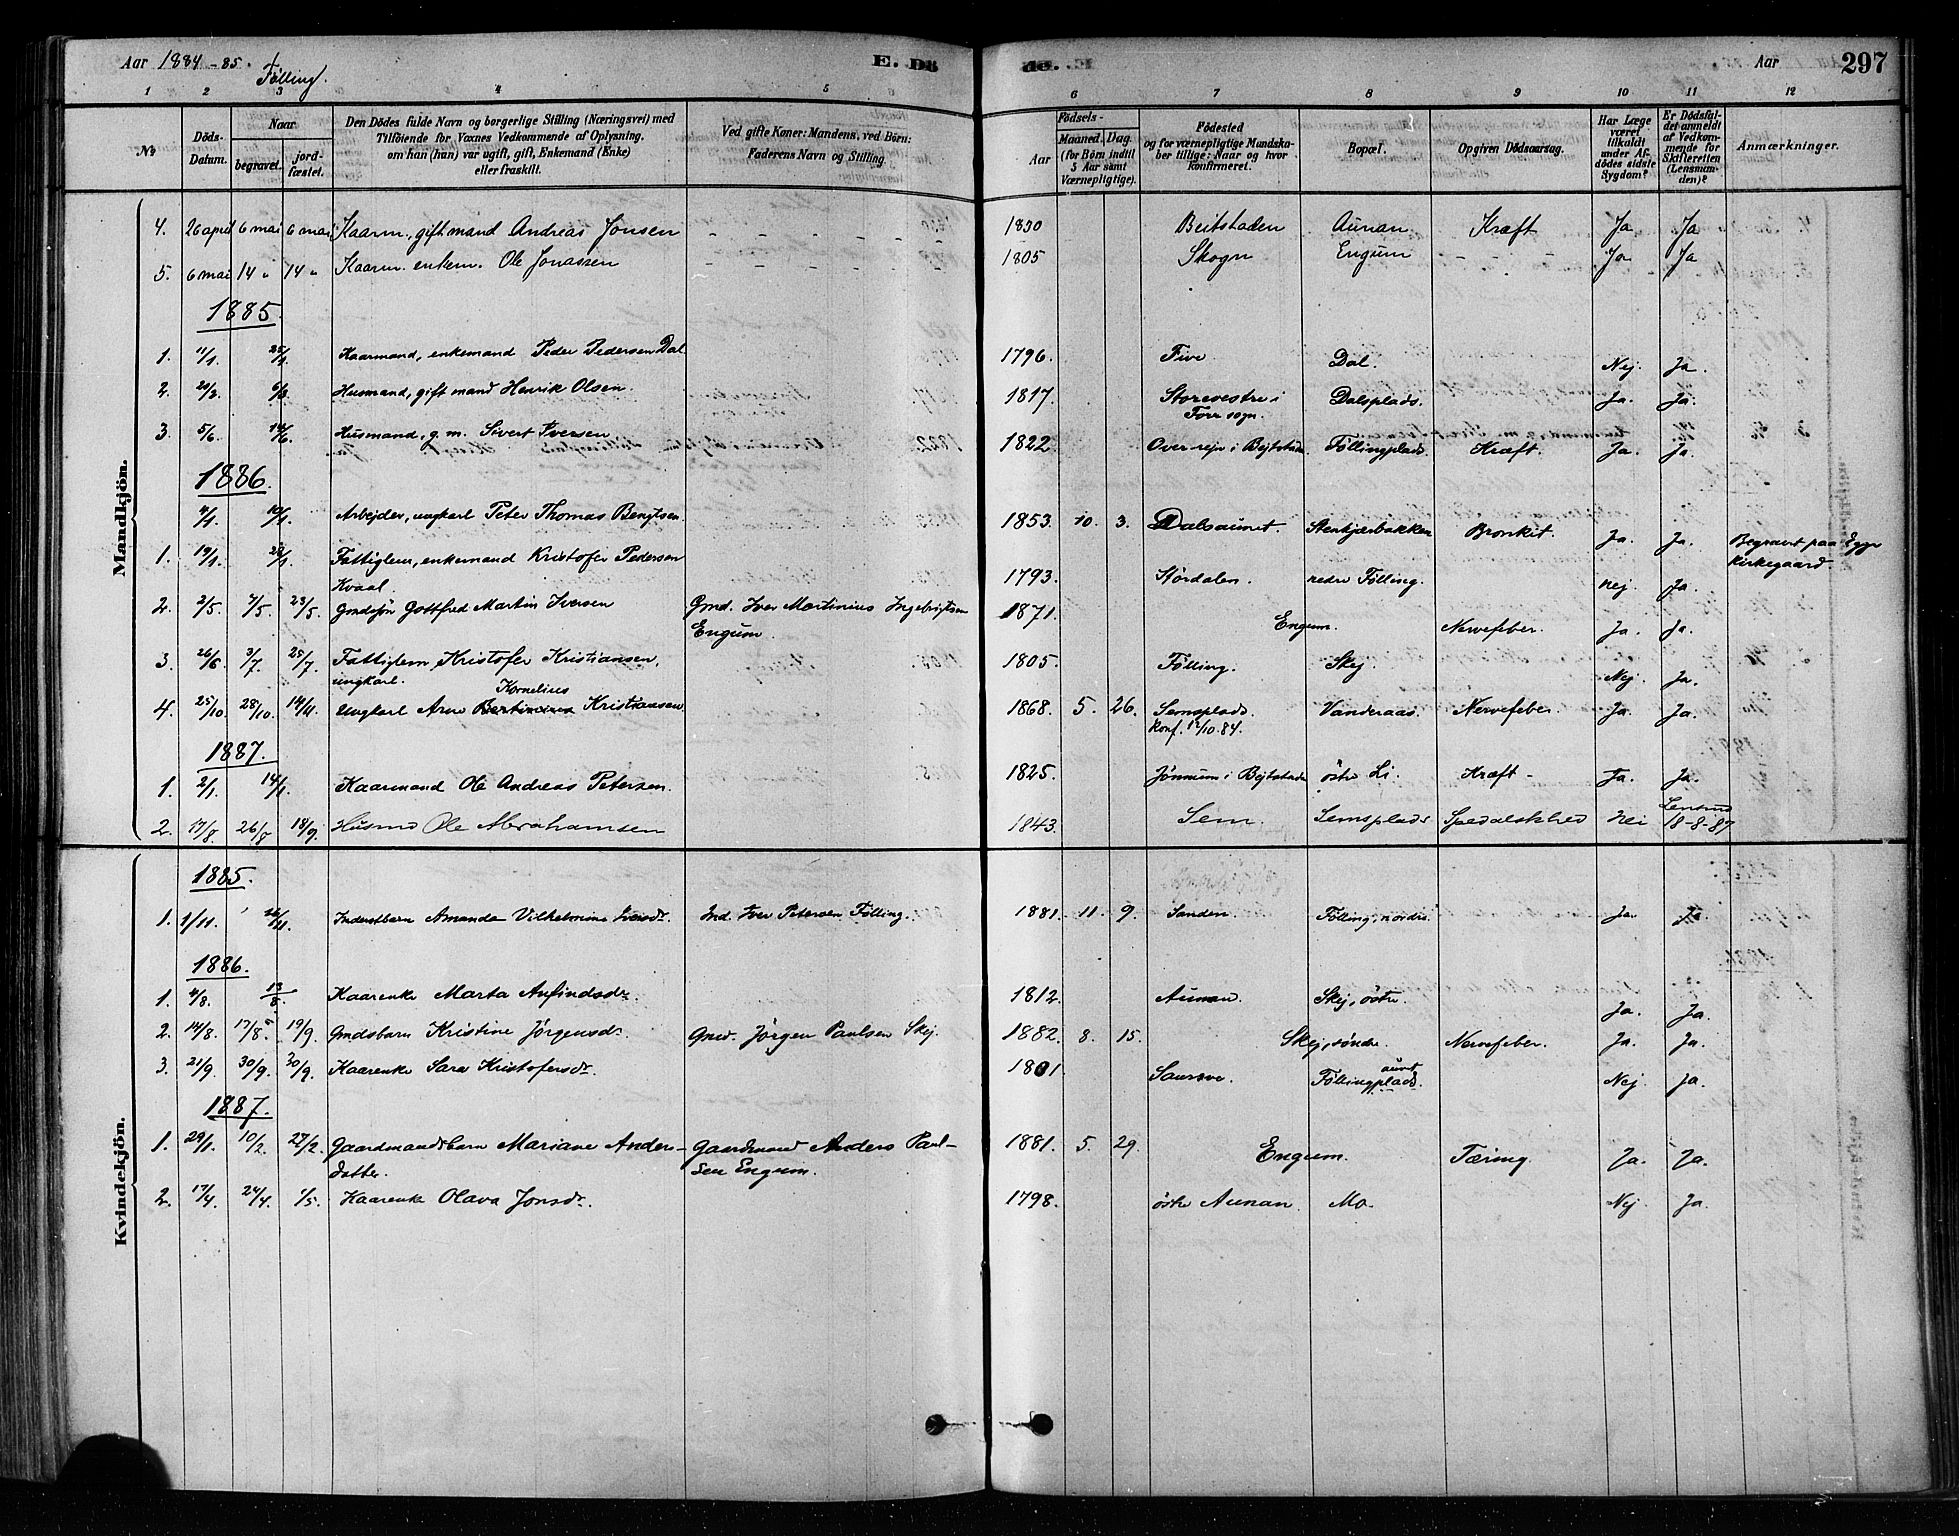 Aar 1884-85. Følling. E. Dö de. Aar 297
1 2 3 4 5 6 7 8 9 10 11 12
No Döds-Datum. Naar begravet. jordfæstet. Den Dödes fulde Navn og borgerlige Stilling (Næringsvei) med Tilföiende for Voxnes Vedkommende af Oplysning, om han (hun) var ugift, gift, Enkemand (Enke) eller fraskilt. Ved gifte Koner: Mandens, ved Börn: Faderens Navn og Stilling. Födsels- Aar Maaned. Dag. (for Börn indtil 5 Aar samt Værnepligtige). Födested og for værnepligtige Mandskaber tillige: Naar og hvor konfirmeret. Bopæl. Opgiven Dödsaarsag. Har Læge været tilkaldt under Afdödes sidste Sygdom? Er Dödsfaldet anmeldt af Vedkommende for Skifteretten (Lensmanden)? Anmærkninger.
Mandkjön.
4. 26 april 6 mai 6 mai Kaarm., gift mand Andreas Jonsen - - - - - 1830 Beitstaden Aunan Kræft Ja Ja
5. 6 mai 14 " 14 " Kaarm. enkem. Ole Jonassen - - - - - 1805 Skogn Engum - - - Ja Ja
1885.
1. 11/1. 25/1. Kaarmand, enkemand Peder Pedersen Dal. 1796. Five Dal. Nej. Ja.
2. 20/2. 6/3. Husmand, gift mand Henrik Olsen. 1817. Storevestre i Forr sogn. Dalsplads. Ja. Ja.
3. 5/6. 14/6. Husmand, g. m. Sivert Iversen 1822. Overrejn i Bejtstad. Føllingplads. Kræft. Ja. Ja.
1886.
4/1. 10/1. Arbejder, ungkarl Peter Thomas Bengtsen. 1853. 10. 3. Dalsaunet. Stenkjærbakken Bronkit. Ja. Ja. Begravet paa Egge kirkegaard.
1. 19/1. 28/1. Fattiglem, enkemand Kristofer Pedersen Kvaal. 1793. Størdalen. nedre Følling. Nej. Ja.
2. 2/5. 7/5. 23/5. Gmdssøn Gottfred Martin Iversen Gmd. Iver Martinius Ingebrigtsen Engum. 1871. Engum. Nervefeber. Ja. Ja.
3. 26/6. 3/7. 25/7. Fattiglem, Kristofer Kristiansen, ungkarl. 1805. Følling. Skej. Nej. Ja.
Kornelius
4. 25/10. 28/10. 14/11. Ungkarl Arn Bertinius Kristiansen 1868. 5. 26. Semsplads. Konf. 12/10.84. Vanderaas. Nervefeber. Ja. Ja.
1887.
1. 2/1. 14/1. Kaarmand Ole Andreas Petersen. 1825. Jønnum i Bejtstad. østre Li. Kræft - Ja. Ja.
2. 17/8. 26/8 18/9. Husmd Ole Abrahamsen 1843. Sem. Semsplads Spedalskhed Nei Lensmd 18-8-87
Kvindekjön.
1885.
1. 1/11. 26/11. Inderstbarn Amanda Vilhelmine Iversdr. Ind. Iver Petersen Følling. 1881. 11. 9. Sanden. Følling, nordre Ja. Ja
1886.
1. 4/8. 13/8. Kaarenke Marta Anfindsdr. 1812. Aunan. Skej, østre. Ja. Ja.
2. 14/8. 17/8. 19/9. Gmdsbarn Kristine Jørgensdr. Gmd. Jørgen Paulsen Skej. 1882. 8. 15. Skej, søndre. Nervefeber. Ja. Ja.
3. 21/9. 30/9. 30/9. Kaarenke Sara Kristofersdr. 1801. Føllingplads. Nej. Ja.
1887.
1. 29/1. 10/2. 27/2. Gaardmandsbarn Mariane Andersdatter Gaardmand Anders Paulsen Engum. 1881. 5. 29. Engum. Tæring Ja. Ja.
2. 17/4. 24/4. 1/5. Kaarenke Olava Jonsdr. 1798. østre Aunan. Mo. Nej. Ja.